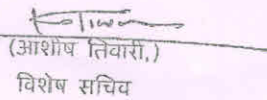 (आशीष तिवारी,)
विशेष सचिव